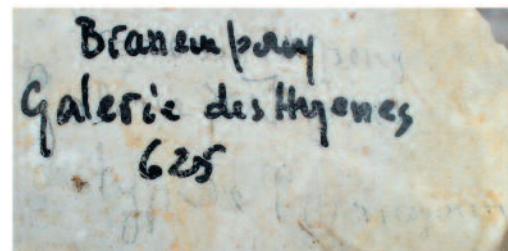 Brassempouy
Galerie des Hyenes
625